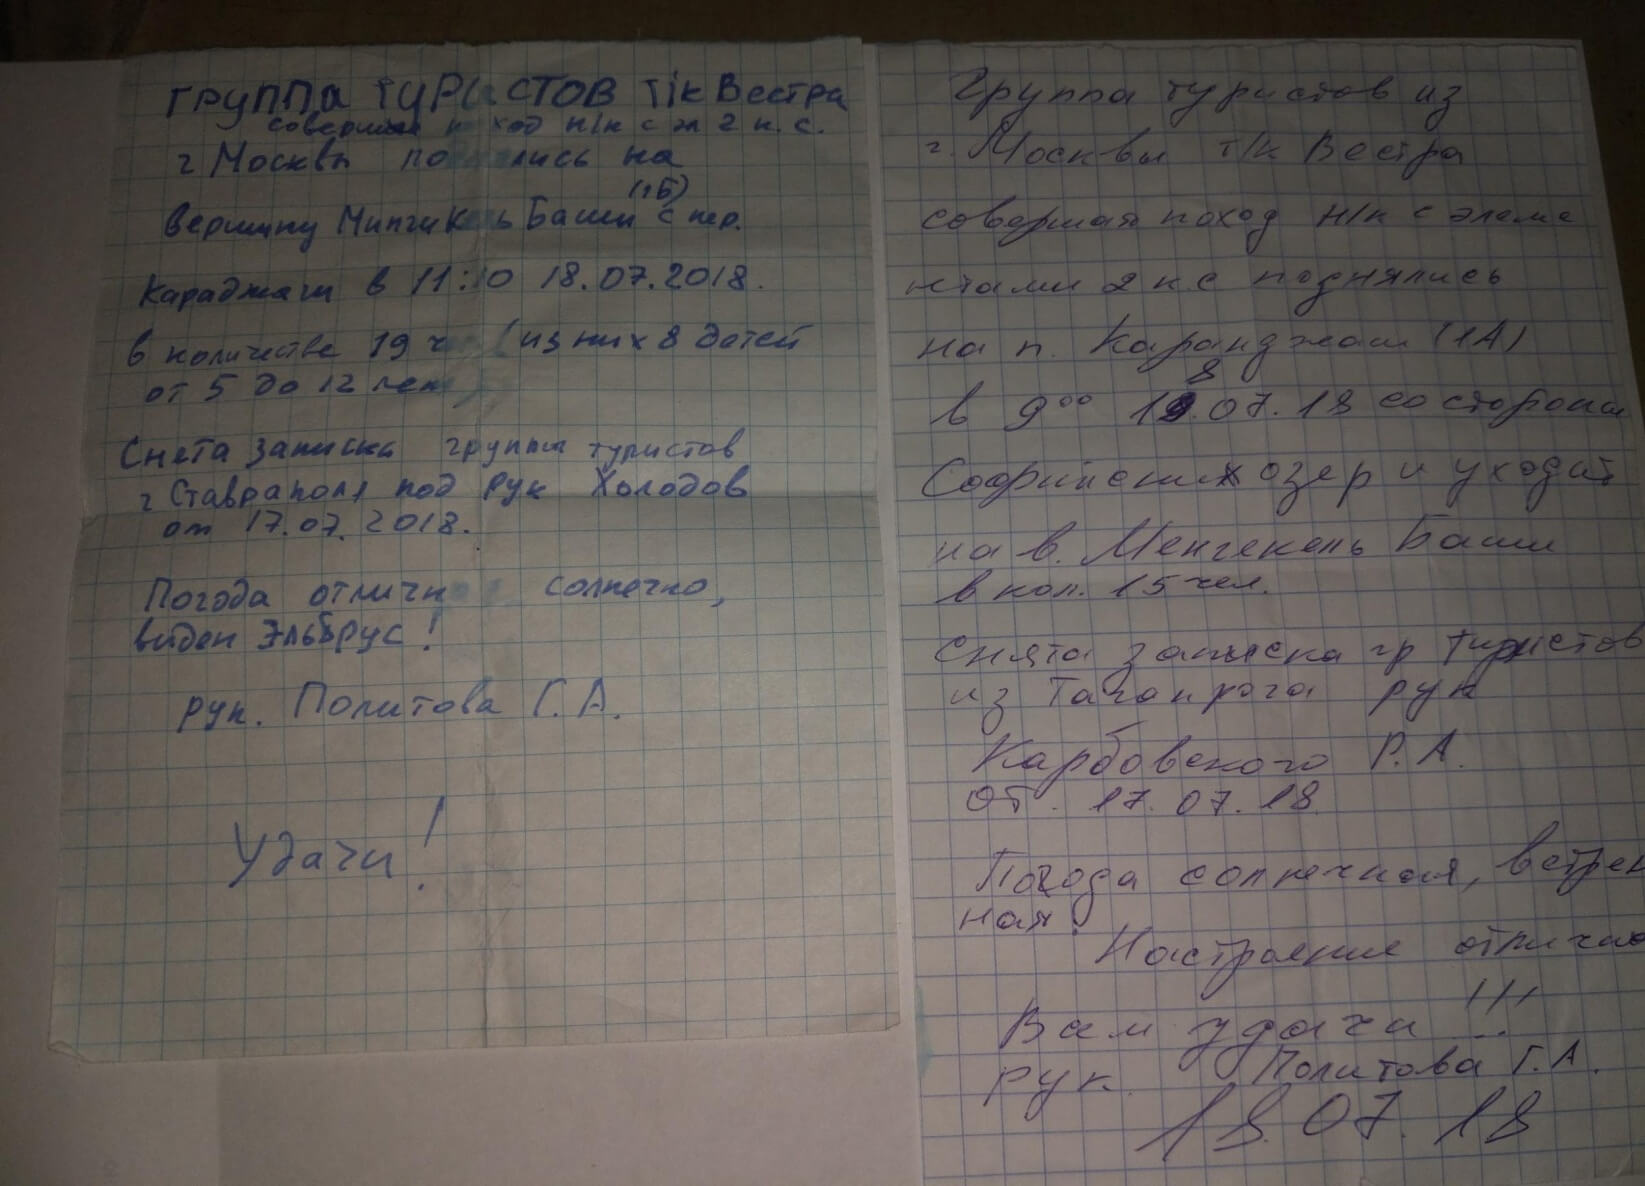 Группа туристов т/к Вестра
совершая поход н/к с эл 2 к.с.
г Москвы поднялись на
(1Б)
вершину Мингикель Баши с пер.
Караджаш в 11:10 18.07.2018.
в количестве 19 че (из них 8 детей
от 5 до 12 лет)
Снята записка группы туристов
г Ставраполя под рук Холодов
от 17.07.2018.
Погода отличн солнечно,
виден Эльбрус!
рук. Политова Г.А.
Удачи!
Группа туристов из
г. Москвы т/к Вестра
совершая поход н/к с элеме
нтами 2 к с поднялись
на п. Каранджаш (1А)
в 9⁰⁰ 18.07.18 со стороны
Софийских озер и уходит
на в. Менгекель Баши
в кол. 15 чел.
Снята записка гр туристов
из Таганрога рук
Карбовского Р.А.
от. 17.07.18
Погода солнечная, ветрен
ная.
Настроение отлично
!!!
Вам удачи
рук. Политова Г.А.
18.07.18